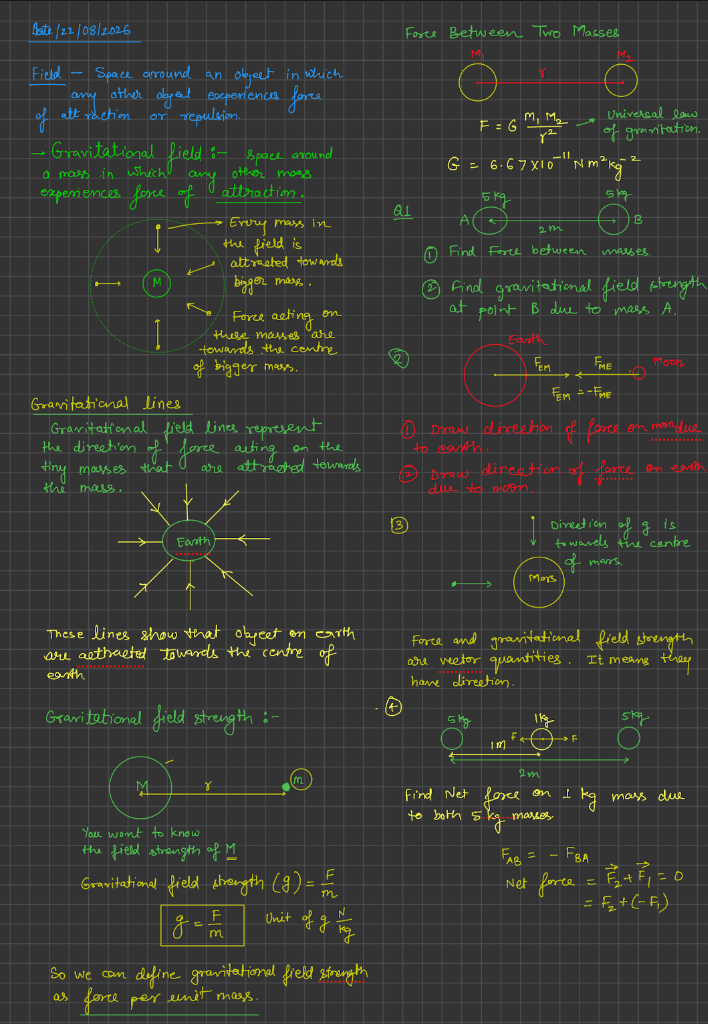 Date / 22/08/2026
Field — Space around an object in which
any other object experiences force
of attraction or repulsion.
→ Gravitational field :- space around
a mass in which any other mass
experiences force of attraction.
M
Every mass in
the field is
attracted towards
bigger mass.
Force acting on
these masses are
towards the centre
of bigger mass.
Gravitational lines
Gravitational field lines represent
the direction of force acting on the
tiny masses that are attracted towards
the mass.
Earth
These lines show that object on earth
are attracted towards the centre of
earth.
Gravitational field strength :-
M r m
You want to know
the field strength of M
Gravitational field strength (g) = F/m
g = F/m Unit of g N/kg
So we can define gravitational field strength
as force per unit mass.
Force Between Two Masses
M₁ r M₂
F = G M₁ M₂ / r² → Universal law
of gravitation.
G = 6.67 X10⁻¹¹ N m² kg⁻²
Q1 5kg 5kg
A B
2m
① Find Force between masses
② Find gravitational field strength
at point B due to mass A.
② Earth
F_EM F_ME Moon
F_EM = -F_ME
① Draw direction of force on moon due
to earth.
② Draw direction of force on earth
due to moon
③ Direction of g is
towards the centre
of mars.
Mars
Force and gravitational field strength
are vector quantities. It means they
have direction.
④ 5kg 1kg 5kg
F F
1m
2m
Find Net force on 1 kg mass due
to both 5 kg masses.
F_AB = - F_BA
Net force = F₂ + F₁ = 0
= F₂ + (-F₁)